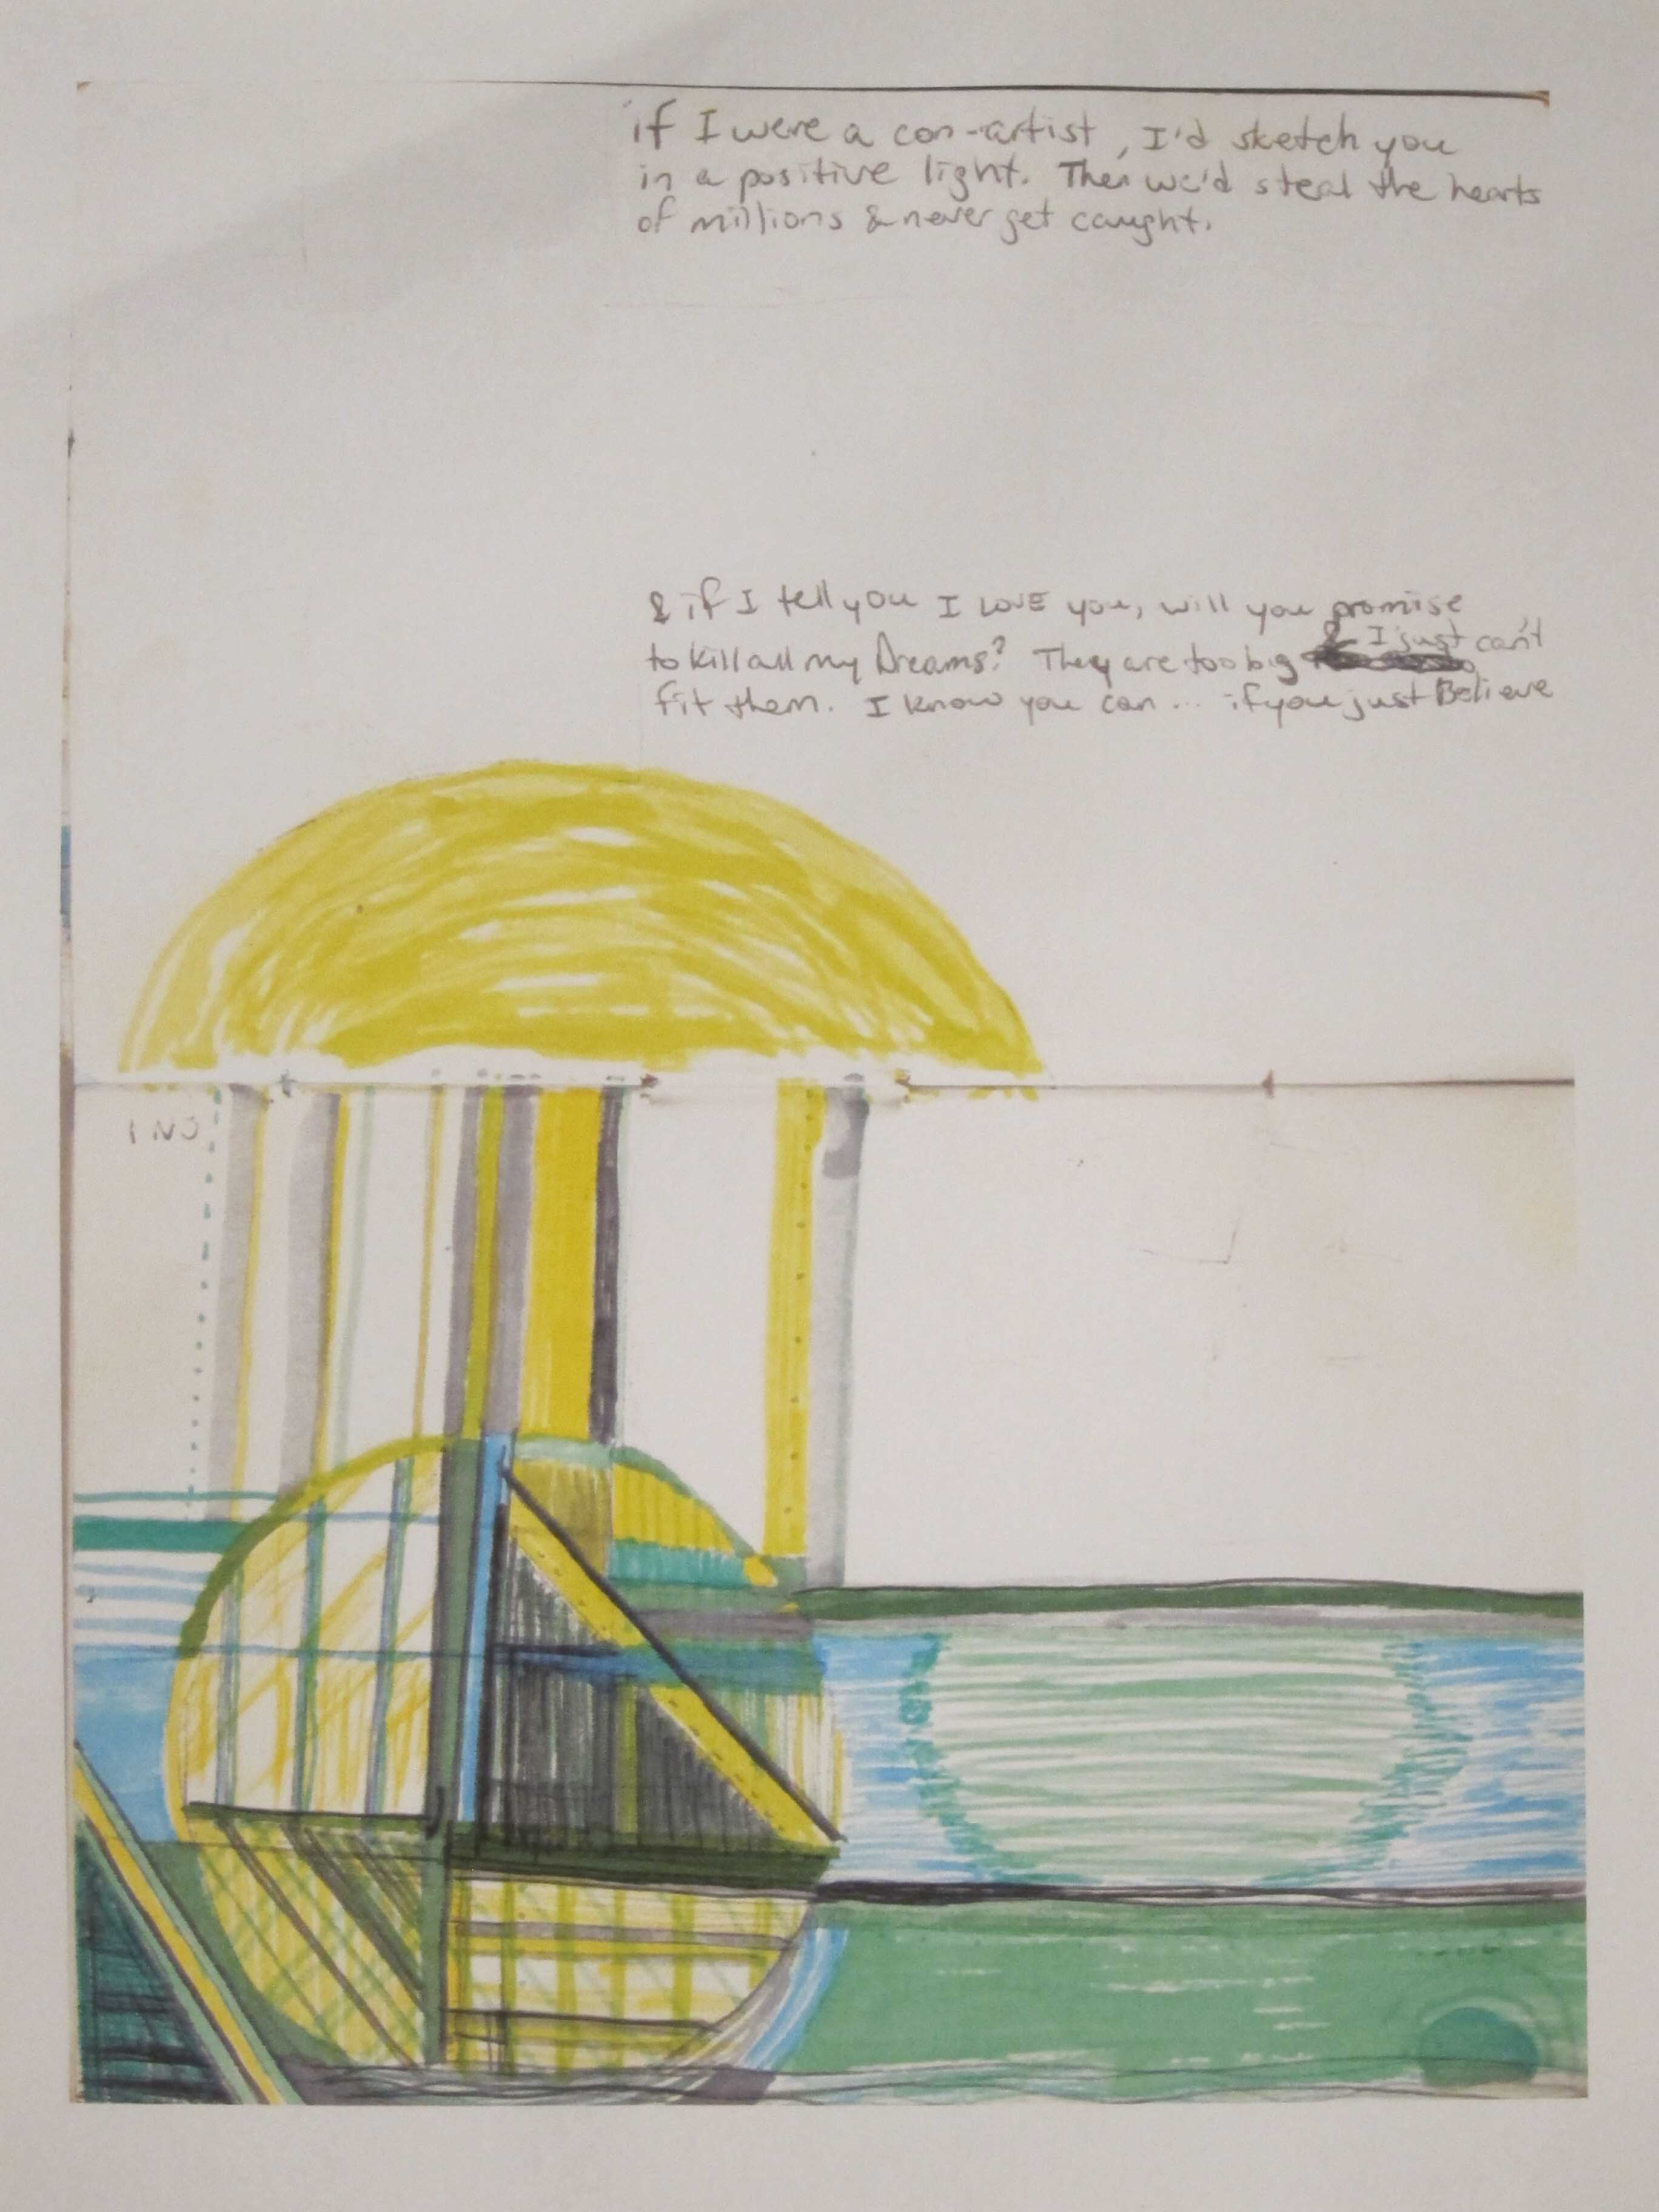 if I were a con-artist, I'd sketch you
in a positive light. Then we'd steal the hearts
of millions & never get caught.
& if I tell you I LOVE you, will you promise
to kill all my Dreams? They are too big & I just can't
fit them. I know you can... if you just Believe